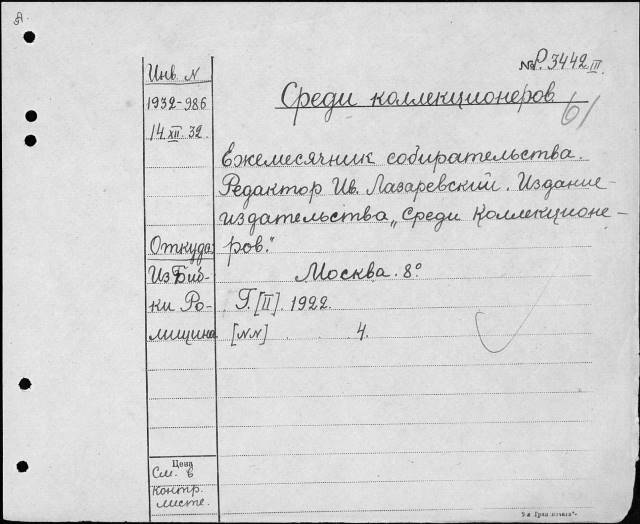 № P. 3442 III
Инв. N
Среди коллекционеров
6/
1932-986
14.XII.32.
Ежемесячник собирательства.
Редактор Ив. Лазаревский. Издание
издательства „Среди Коллекционе-
Откуда
ров."
Из Биб-
Москва. 8°
ки Ро-
Г. [II]. 1922.
мищина
[NN] 4.
Цена
См. в
контр.
листе.